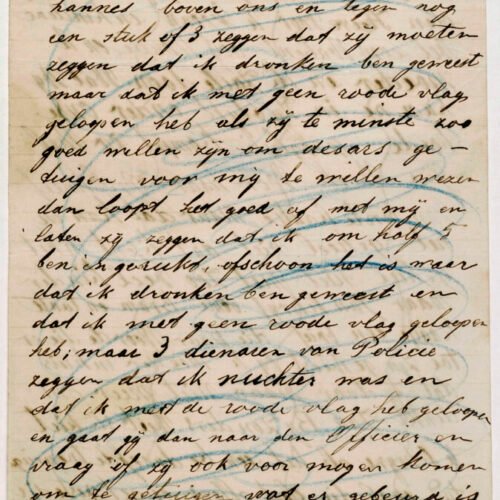 hannes boven ons en tegen nog
een stuk of 3 zeggen dat zij moeten
zeggen dat ik dronken ben geweest
maar dat ik met geen roode vlag
geloopen heb als zij te minste zoo
goed willen zijn om desars ge-
tuigen voor mij te willen wezen
dan loopt het goed af met mij en
laten zij zeggen dat ik om half 5
ben ingerukt, ofschoon het is waar
dat ik dronken ben geweest en
dat ik met geen roode vlag geloopen
heb; maar 3 dienaren van Policie
zeggen dat ik nuchter was en
dat ik met de roode vlag heb geloopen
en gaat gij dan naar den Officier en
vraag of zij ook voor mogen komen
om te getuigen wat er gebeurd is